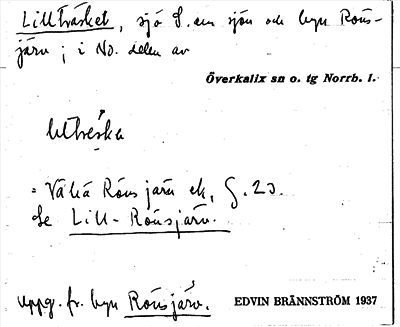 Lillträsket, sjö S. om sjön och byn Röus-
järv ; i No. delen av
Överkalix sn o. tg Norrb. l.
litreska
= Vähä Röusjärv ek, § . 23.
Se Lill-Röusjärv.
Uppg. fr. byn Röusjärv. EDVIN BRÄNNSTRÖM 1937